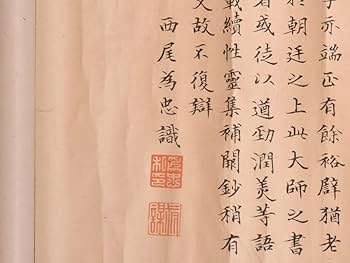 字亦端正有餘裕辟猶老
於朝廷之上此大師之書
者或徒以遒勁潤美等語
載續性靈集補闕鈔稍有
文故不復辯
西尾為忠識